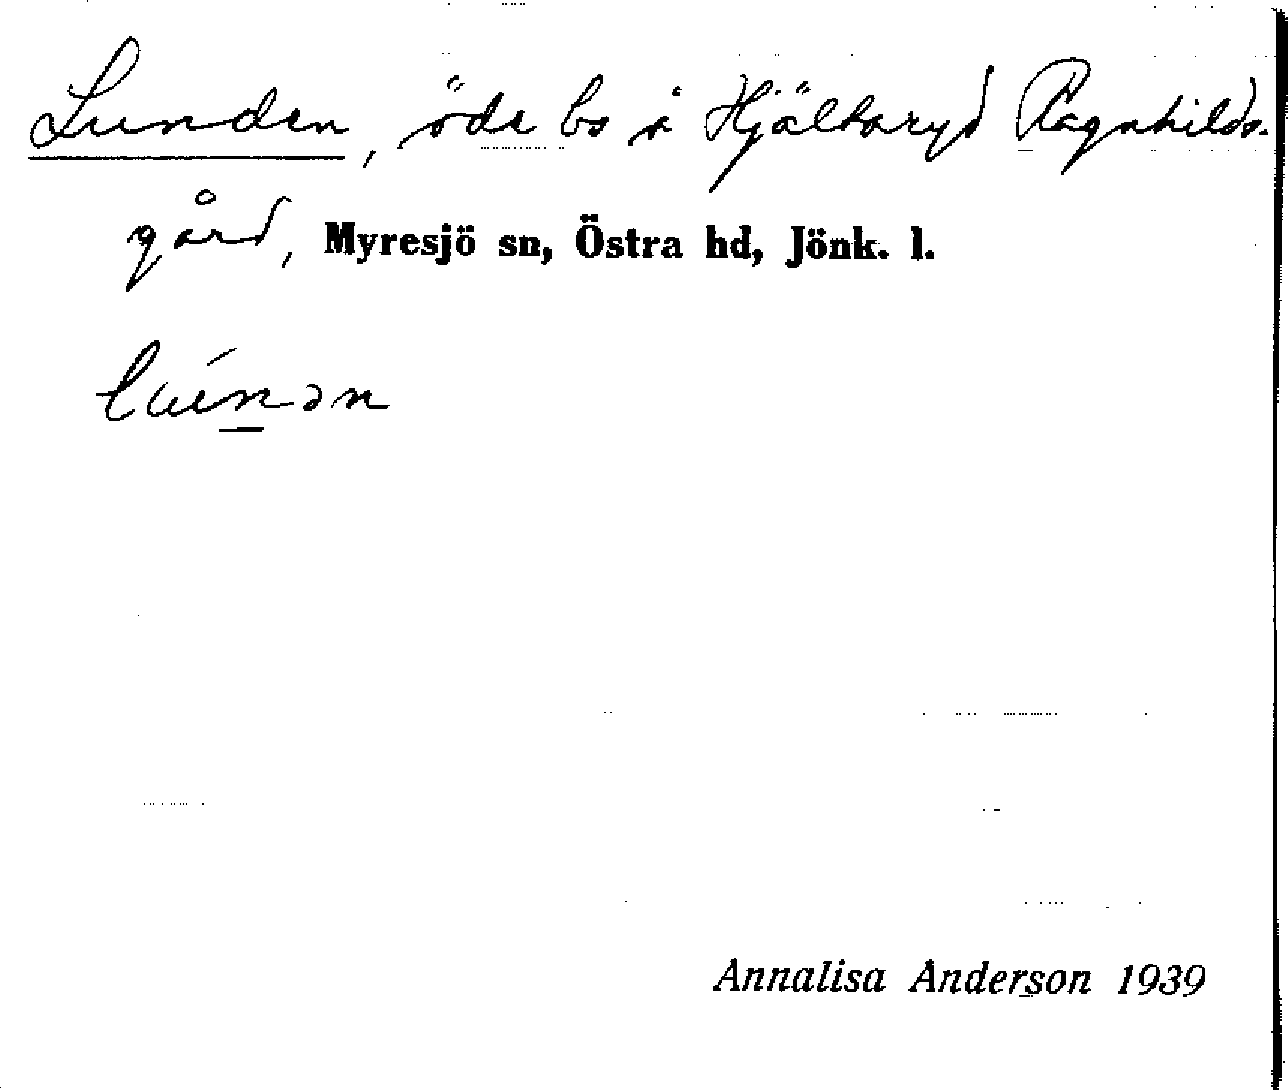 Lunden, öde bs å Hjältaryd Ragnhilds-
gård, Myresjö sn, Östra hd, Jönk. l.
Annalisa Anderson 1939